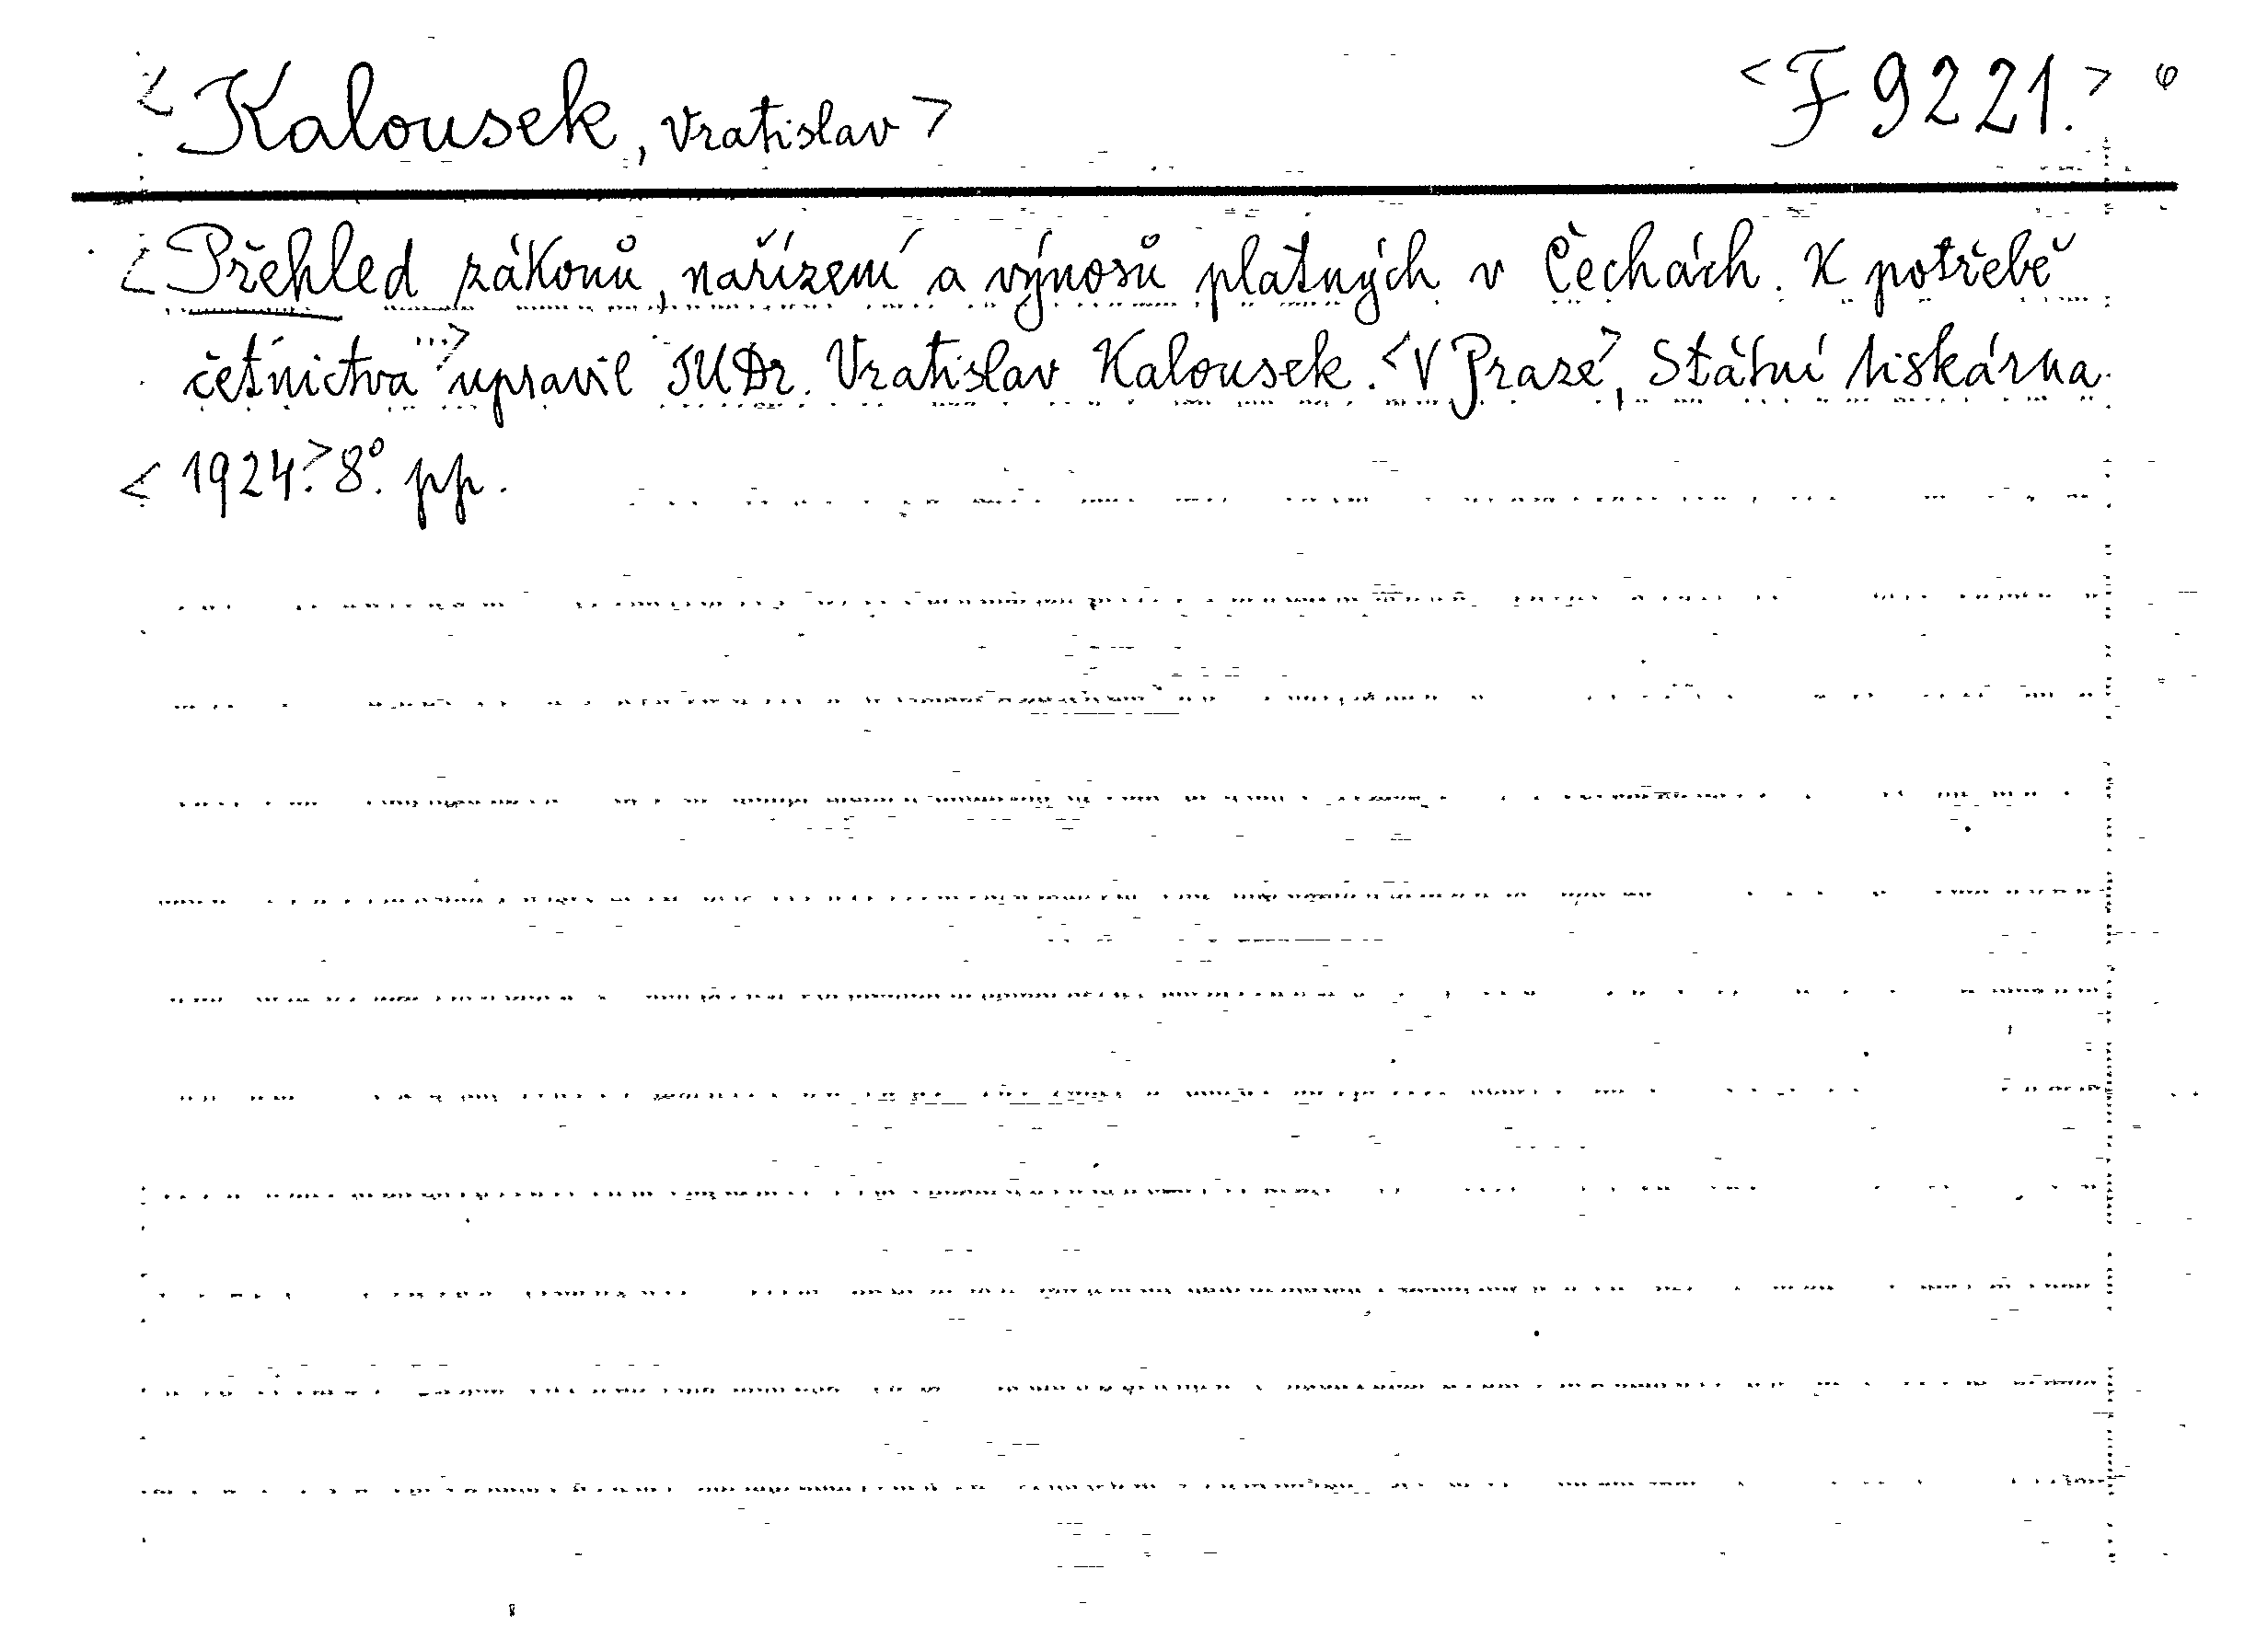 <Kalousek, Vratislav> <F 9221.> φ
<Přehled zákonů, nařízení a výnosů platných v Čechách. K potřebě
četnictva> upravil JUDr. Vratislav Kalousek. <V Praze>, Státní tiskárna.
<1924.> 8°. pp.